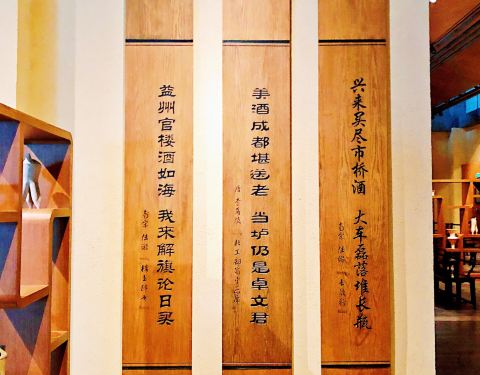 兴来买尽市桥酒 大车磊落堆长瓶
南宋 陆游
美酒成都堪送老 当垆仍是卓文君
唐 李商隐
益州官楼酒如海 我来解旗论日买
南宋 陆游